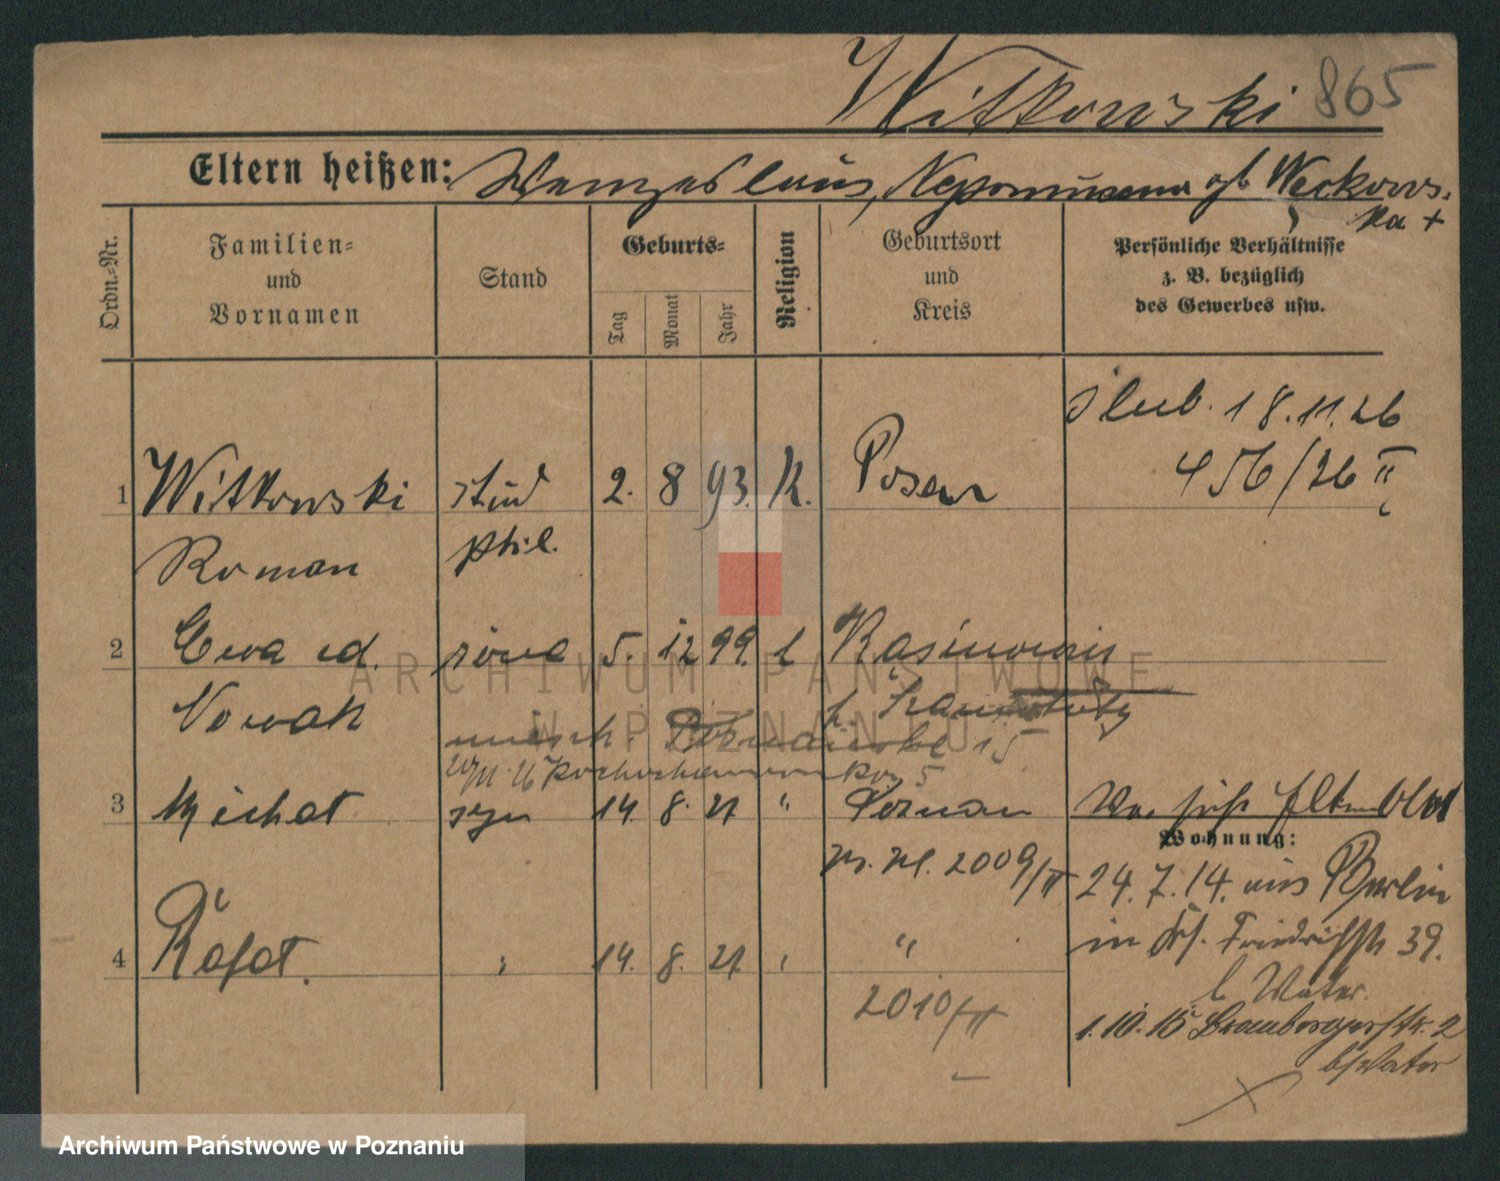 Witkowski 865
Eltern heißen: Wenzeslaus, Nepomucena gb Weckows.
ka +
Ordn.-Nr.
Familien-
und
Vornamen
Stand
Geburts-
Tag
Monat
Jahr
Religion
Geburtsort
und
Kreis
Persönliche Verhältnisse
z. B. bezüglich
des Gewerbes usw.
ślub. 18.11.26
456/26 II
1 Witkowski stud 2. 8 93. K. Posen
Roman phil.
2 Ewa id. żona 5. 12 99. k
Nowak
miesch. 15
5
3 Michał syn 14. 8. 27 " Poznan
2009/II
Wohnung:
24.7.14. aus Berlin
in Friedrichstr 39.
b Vater.
4 Rafał. " 14. 8. 27 " "
2010/II
1.10.15 Brombergerstr. 2
b/Vater
ARCHIWUM PAŃSTWOWE
W POZNANIU
Archiwum Państwowe w Poznaniu